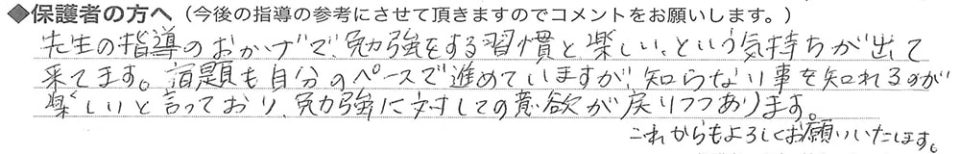 ◆保護者の方へ（今後の指導の参考にさせて頂きますのでコメントをお願いします。）
先生の指導のおかげで、勉強をする習慣と楽しい、という気持ちが出て
来てます。宿題も自分のペースで進めていますが、知らない事を知れるのが
楽しいと言っており、勉強に対しての意欲が戻りつつあります。
これからもよろしくお願いいたします。